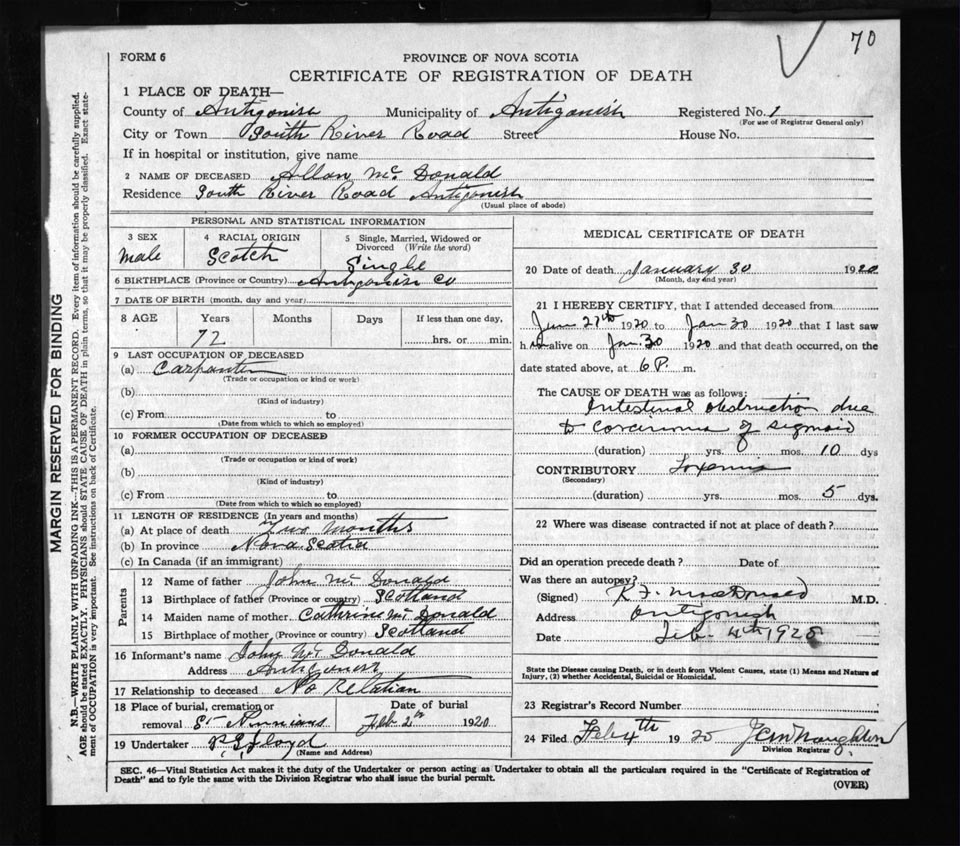 70
FORM 6
PROVINCE OF NOVA SCOTIA
CERTIFICATE OF REGISTRATION OF DEATH
1 PLACE OF DEATH—
County of Antigonish Municipality of Antigonish Registered No. 1
(For use of Registrar General only)
City or Town South River Road Street House No.
If in hospital or institution, give name
2 NAME OF DECEASED Allan Mc Donald
Residence South River Road Antigonish
(Usual place of abode)
PERSONAL AND STATISTICAL INFORMATION
3 SEX
male
4 RACIAL ORIGIN
Scotch
5 Single, Married, Widowed or Divorced (Write the word)
Single
6 BIRTHPLACE (Province or Country) Antigonish Co
7 DATE OF BIRTH (month, day and year)
8 AGE Years Months Days If less than one day,
72 hrs. or min.
9 LAST OCCUPATION OF DECEASED
(a) Carpenter
(Trade or occupation or kind or work)
(b)
(Kind of industry)
(c) From to
(Date from which to which so employed)
10 FORMER OCCUPATION OF DECEASED
(a)
(Trade or occupation or kind of work)
(b)
(Kind of industry)
(c) From to
(Date from which to which so employed)
11 LENGTH OF RESIDENCE (In years and months)
(a) At place of death Two months
(b) In province Nova Scotia
(c) In Canada (if an immigrant)
Parents
12 Name of father John Mc Donald
13 Birthplace of father (Province or country) Scotland
14 Maiden name of mother Cathrine Mc Donald
15 Birthplace of mother (Province or country) Scotland
16 Informant's name John Mc Donald
Address Antigonish
17 Relationship to deceased No Relation
18 Place of burial, cremation or Date of burial
removal St Ninians Feb 2nd 1920
19 Undertaker Floyd
(Name and Address)
MEDICAL CERTIFICATE OF DEATH
20 Date of death January 30 1920
(Month, day and year)
21 I HEREBY CERTIFY, that I attended deceased from
27th 1920 to Jan 30 1920 that I last saw
h alive on Jan. 30 1920 and that death occurred, on the
date stated above, at 6 P. m.
The CAUSE OF DEATH was as follows:
Intestinal obstruction due
to carcinoma of sigmoid
(duration) yrs. mos. 10 dys
CONTRIBUTORY Toxemia
(Secondary)
(duration) yrs. mos. 5 dys.
22 Where was disease contracted if not at place of death?
Did an operation precede death? Date of
Was there an autopsy?
(Signed) MacDonald M.D.
Address Antigonish
Date Feb. 4th
State the Disease causing Death, or in death from Violent Causes, state (1) Means and Nature of
Injury, (2) whether Accidental, Suicidal or Homicidal.
23 Registrar's Record Number
24 Filed Feb 4th 1920
Division Registrar
SEC. 46—Vital Statistics Act makes it the duty of the Undertaker or person acting as Undertaker to obtain all the particulars required in the "Certificate of Registration of
Death" and to fyle the same with the Division Registrar who shall issue the burial permit.
(OVER)
MARGIN RESERVED FOR BINDING
N.B.—WRITE PLAINLY WITH UNFADING INK—THIS IS A PERMANENT RECORD. Every item of information should be carefully supplied.
AGE should be stated EXACTLY. PHYSICIANS should STATE CAUSE OF DEATH in plain terms, so that it may be properly classified. Exact state-
ment of OCCUPATION is very important. See instructions on back of Certificate.